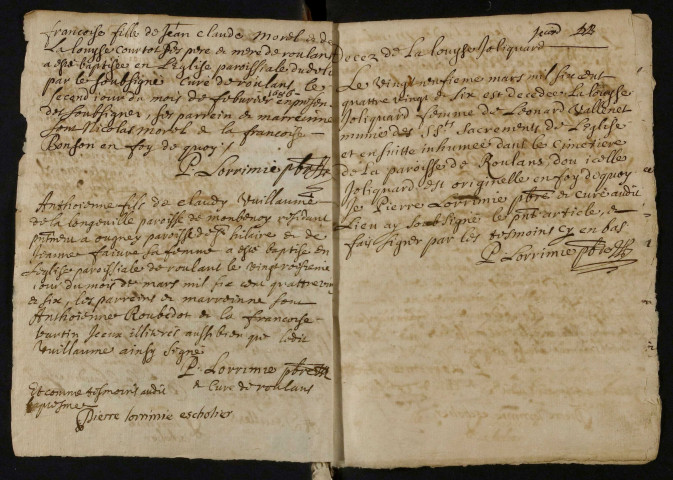 francoise fille de Jean Claude Morel et de
La Louyse Courtot ses pere et mere de roulans
a esté baptisée en L'eglise paroissiale dudit lieu
par le soubsigné Curé de roulans le
second jour du mois de feburier 1686 en presen
des soubsignés, ses parrein et marreinne
sont Nicolas Morel et la francoise
Bonson en foy de quoy /
P. Lorrimie pbre
Anthoienne fils de Claudy Vuillaume
de la Longeuille paroisse de monbenoy residant
a ougney paroisse de St hilaire et de
Jeanne faiure sa femme a esté baptisé en
L'eglise paroissiale de roulans le vingt
jour du mois de mars mil six cens quattre vin
et six, ses parrein et marreinne sont
Anthoienne Roubedot et la francoise
illiteres aussi bien que ledit
Vuillaume ainsy signé
P. Lorrimie pbre
et Curé de roulans
Et comme tesmoins audit
baptesme
Pierre lorrimie escholier
Decez de La Louyse Joliquard
Le vingt neufieme mars mil six cent
quattre vingt et six est decedée La Louyse
Joliquard femme de Leonard Vallenet
munie des SSts sacrements de L'eglise
et ensuitte inhumée dans le Cimetiere
de La paroisse de Roulans dou icelle
Joliquard est originelle en foy de quoy
Je Pierre Lorrimie pbre et Curé audit
Lieu ay soubsigné le pnt article, et
fait signer par les tesmoins cy en bas
P. Lorrimie pbre